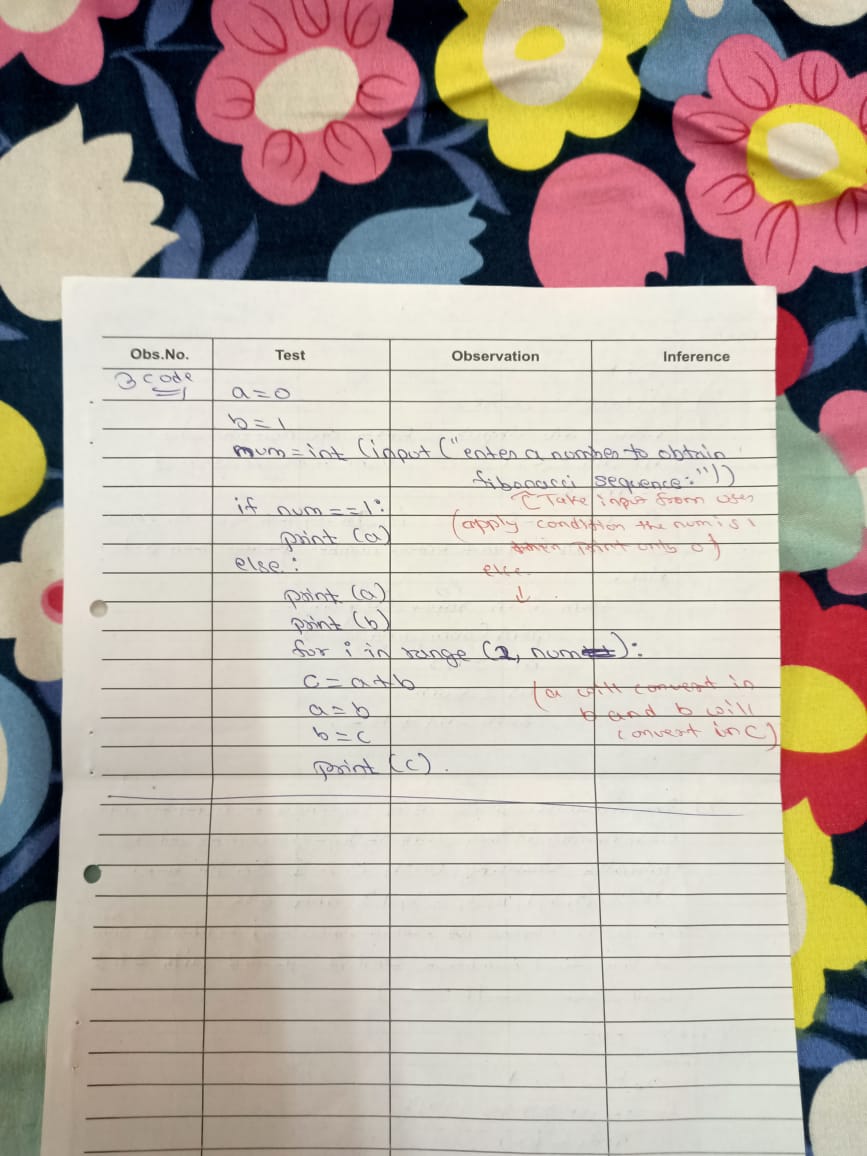 Obs.No. Test Observation Inference
3 code
a=0
b=1
num=int (input ("enter a number to obtain
fibonacci sequence:"))
(Take input from user
if num==1:
(apply condition the num is 1
print (a)
then print only 0)
else:
else.
↓ .
print (a)
print (b)
for i in range (2, num):
c=a+b
(a will convert in
a=b
b and b will
b=c
convert in c)
print (c) .